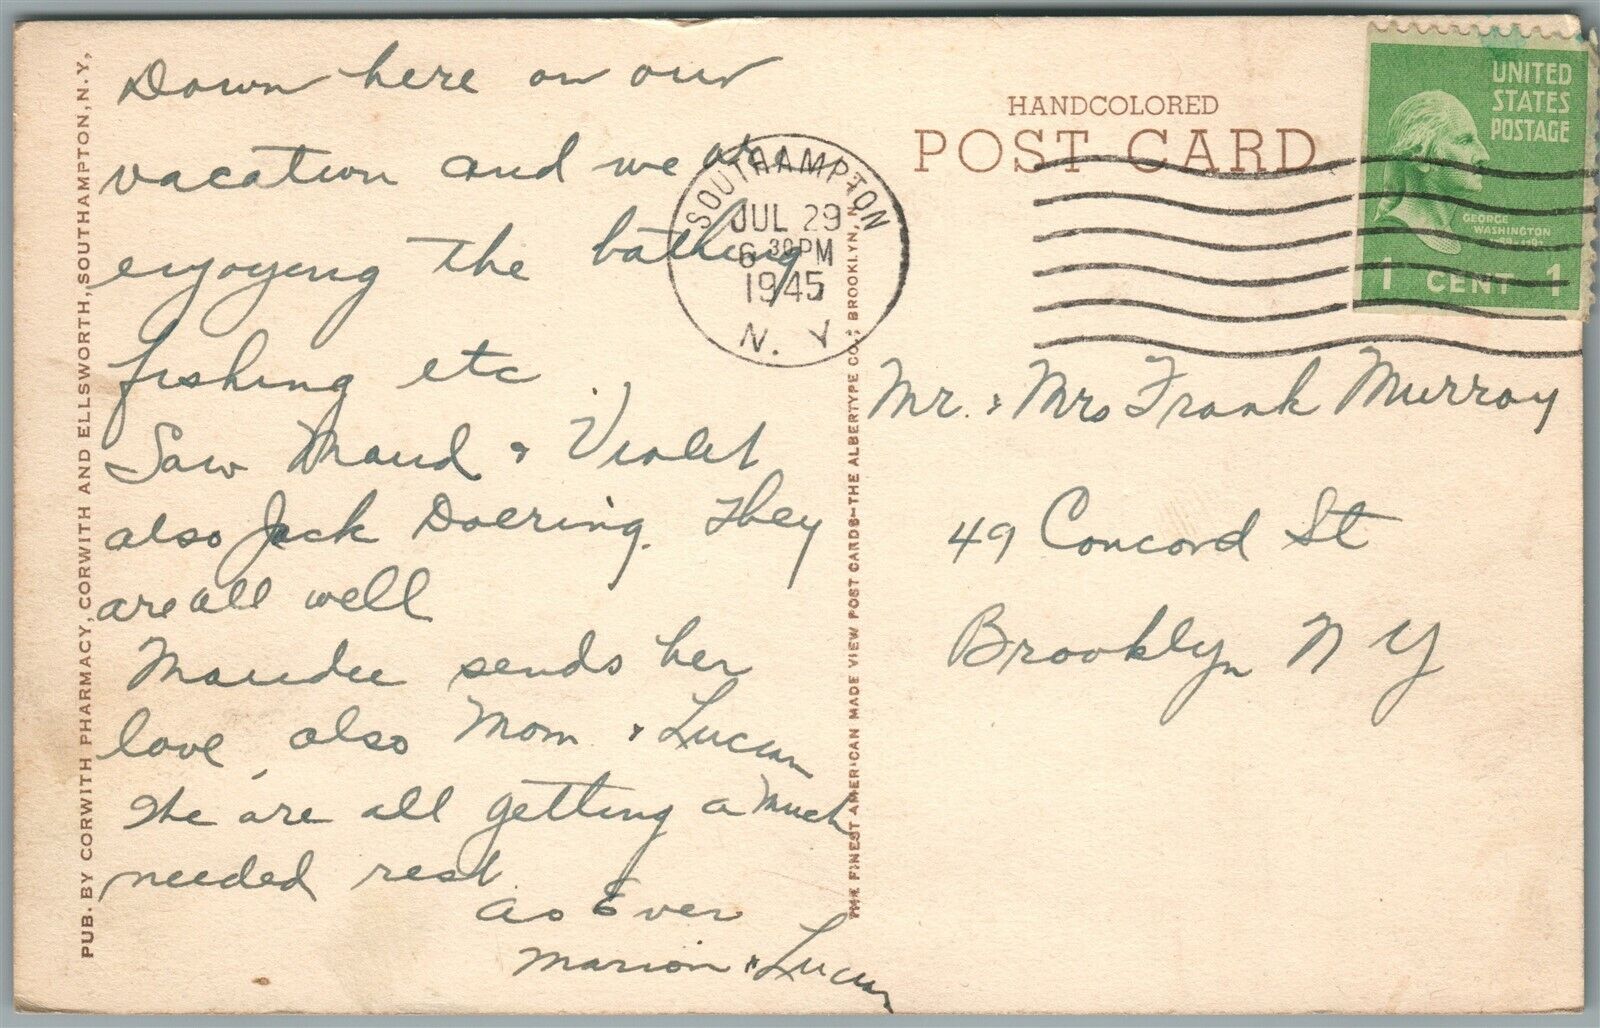 PUB. BY CORWITH PHARMACY, CORWITH AND ELLSWORTH, SOUTHAMPTON, N.Y.
Down here on our
vacation and we are
enjoying the bathing,
fishing etc.
Saw Maud & Violet
also Jack Doering. They
are all well
Maudee sends her
love, also Mom & Lucian
We are all getting a much
needed rest.
As Ever
Marion & Lucian
THE FINEST AMERICAN MADE VIEW POST CARDS—THE ALBERTYPE CO., BROOKLYN, N.Y.
SOUTHAMPTON
JUL 29
6 30 PM
1945
N. Y
HANDCOLORED
POST CARD
UNITED
STATES
POSTAGE
GEORGE
WASHINGTON
1 CENT 1
Mr. & Mrs Frank Murray
49 Concord St
Brooklyn N Y